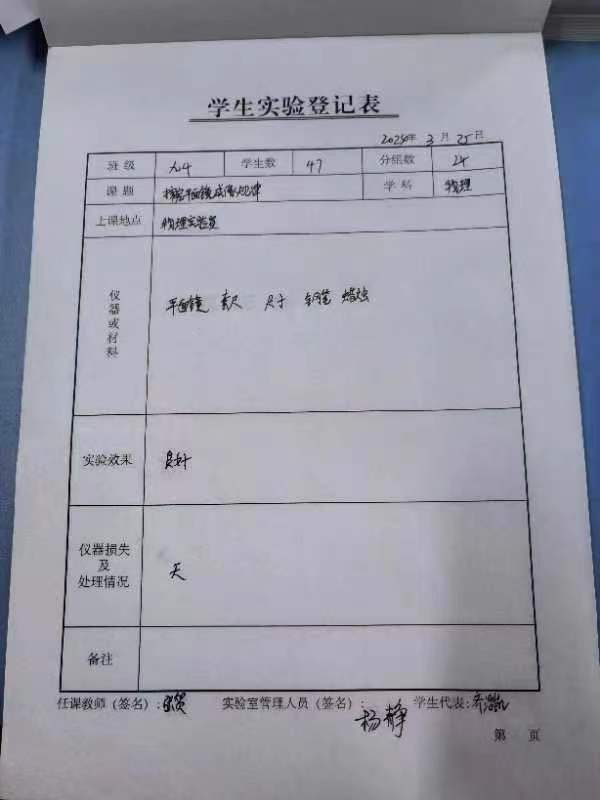 学生实验登记表
2024年 3月 25日
班级 九4 学生数 47 分组数 24
课题 探究平面镜成像规律 学科 物理
上课地点 物理实验室
仪器或材料 平面镜 尺寸 蜡烛
实验效果 良好
仪器损失及处理情况 无
备注
任课教师(签名): 实验室管理人员(签名): 杨静 学生代表:
第 页